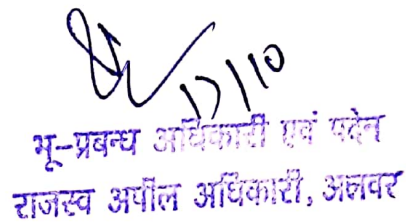 17/10
भू-प्रबन्ध अधिकारी एवं पदेन
राजस्व अपील अधिकारी, अलवर